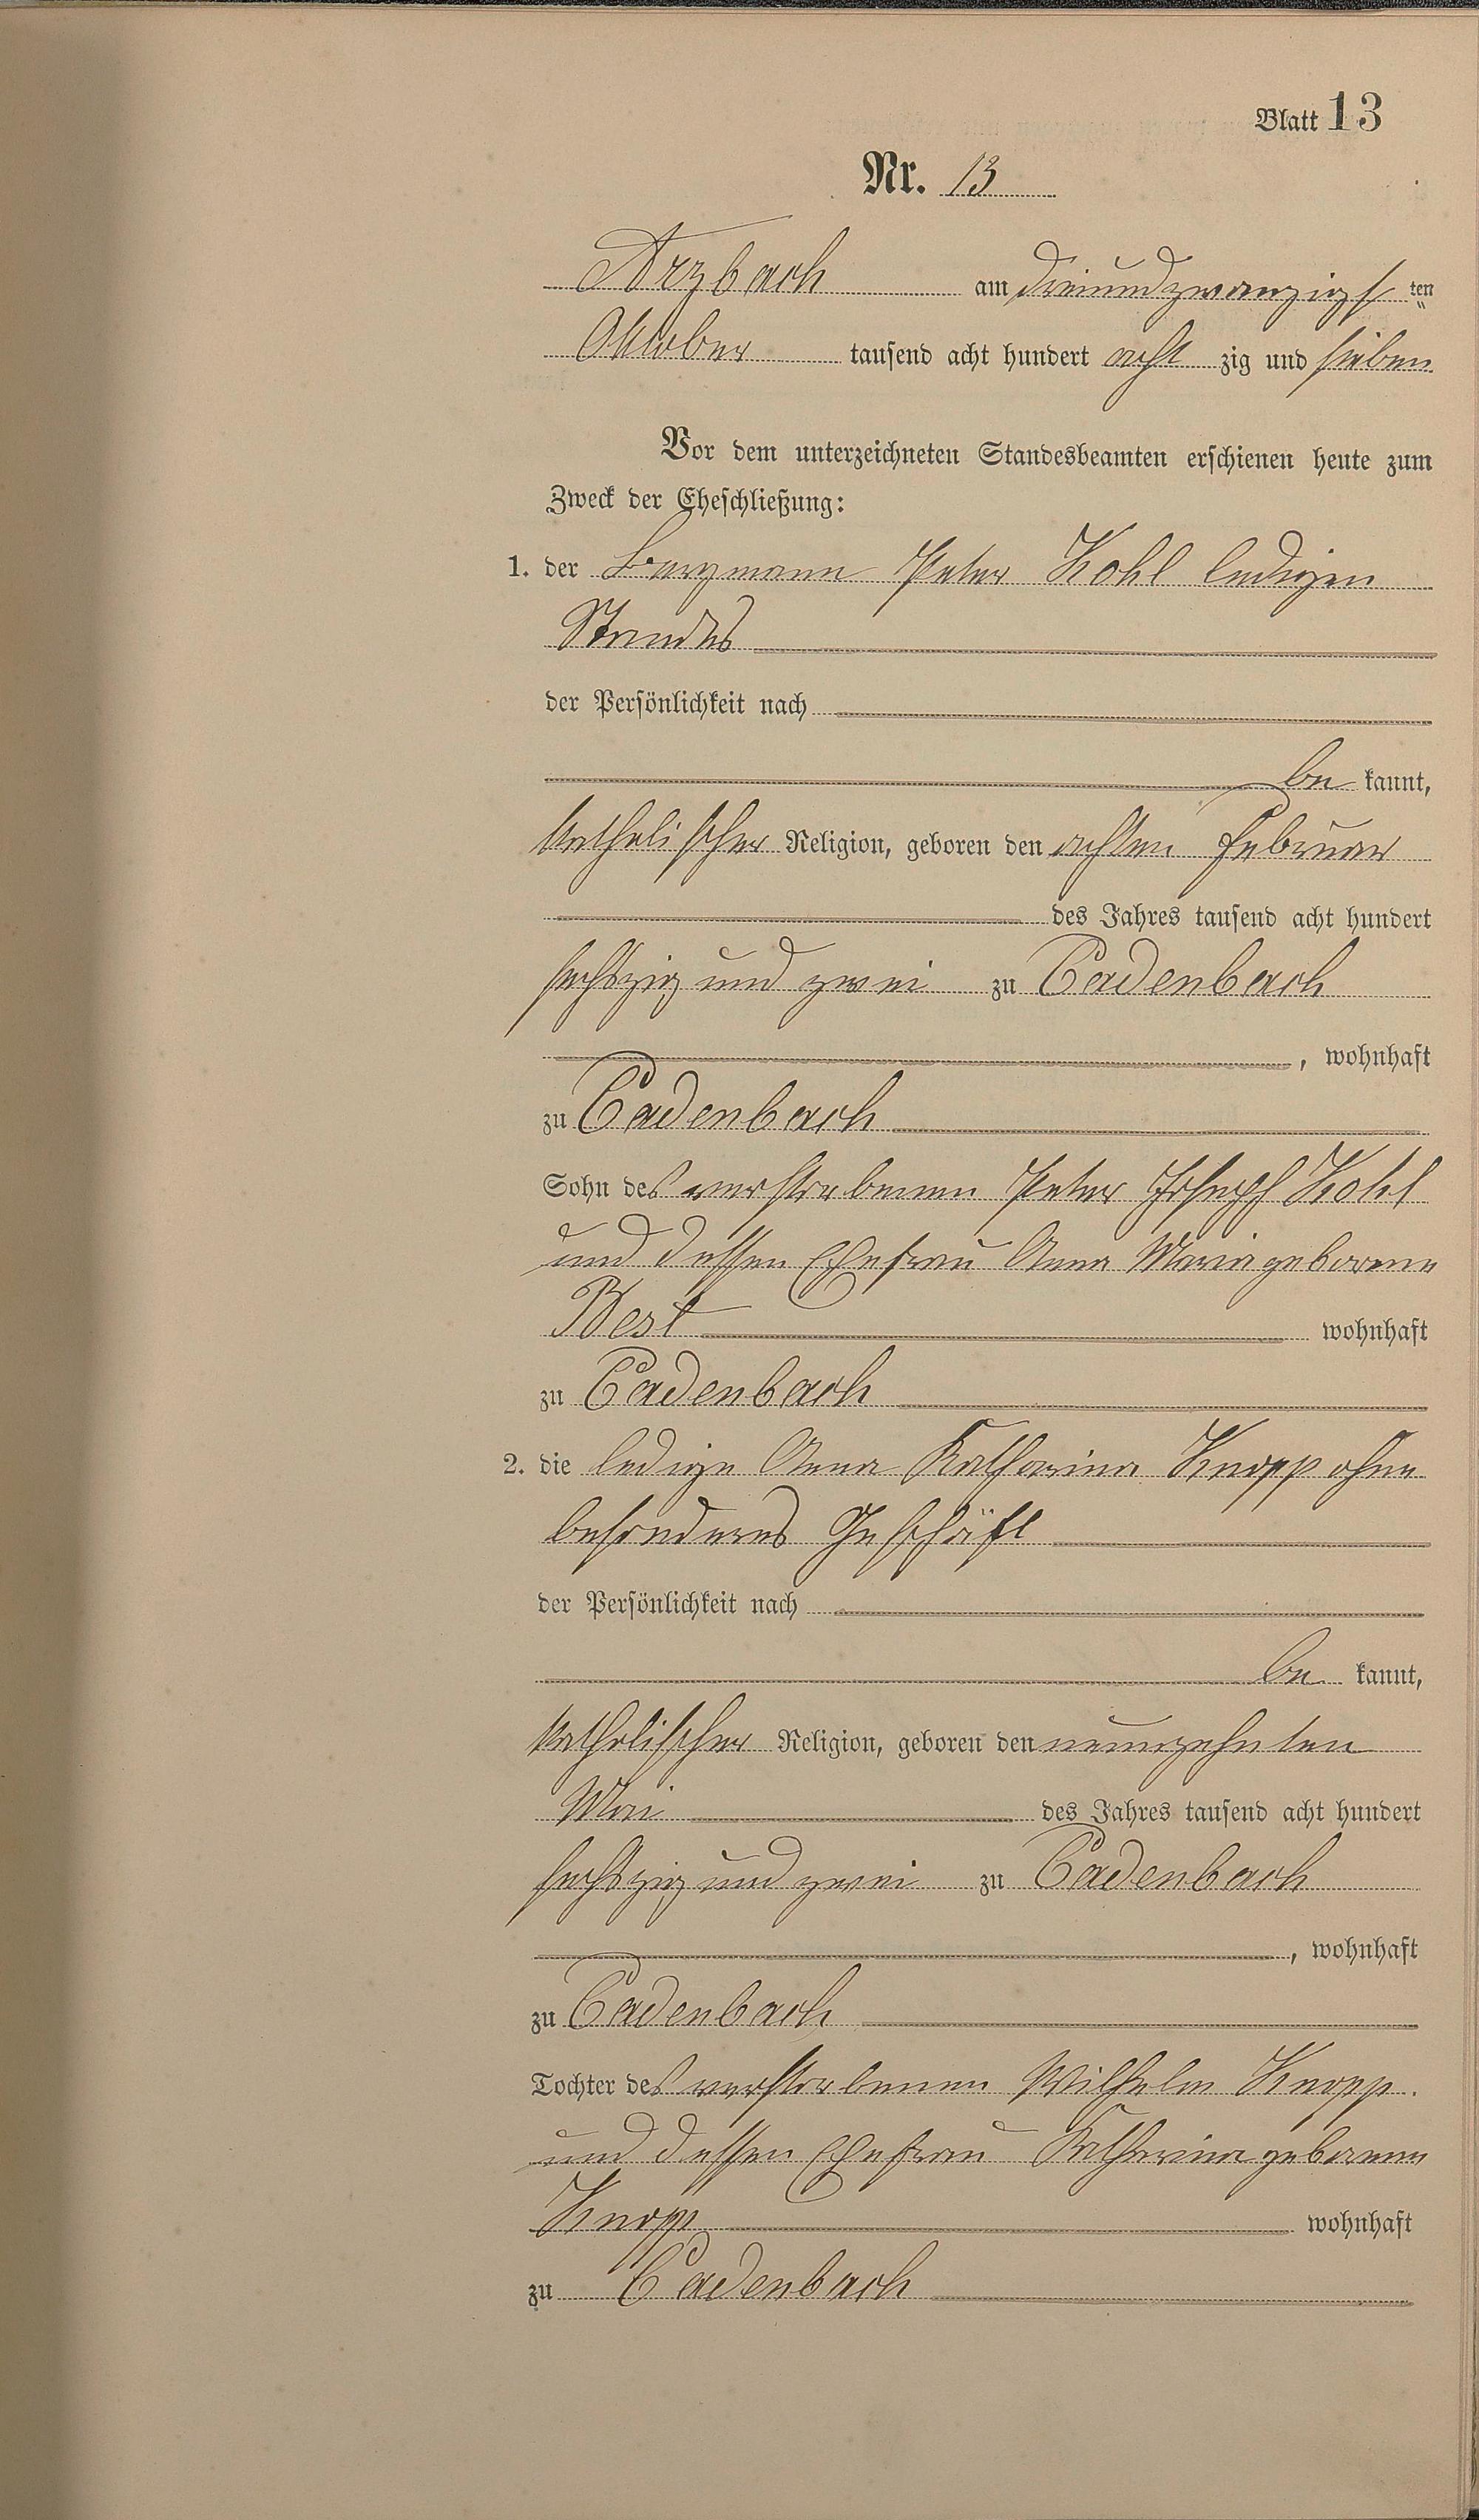 Blatt 13
Nr. 13
Arzbach am dreiundzwanzigst ten
Oktober tausend acht hundert acht zig und sieben
Vor dem unterzeichneten Standesbeamten erschienen heute zum
Zweck der Eheschließung:
1. der Bergmann Peter Kohl ledigen
Standes
der Persönlichkeit nach
be kannt,
katholischer Religion, geboren den achten Februar
des Jahres tausend acht hundert
sechszig und zwei zu Cadenbach
, wohnhaft
zu Cadenbach
Sohn des verstorbenen Peter Joseph Kohl
und dessen Ehefrau Anna Maria geborene
Best wohnhaft
zu Cadenbach
2. die ledige Anna Katharina Knopp ohne
besonderes Geschäft
der Persönlichkeit nach
be kannt,
katholischer Religion, geboren den neunzehnten
Mai des Jahres tausend acht hundert
sechszig und zwei zu Cadenbach
, wohnhaft
zu Cadenbach
Tochter des verstorbenen Wilhelm Knopp
und dessen Ehefrau Katharina geborene
Knopp wohnhaft
zu Cadenbach